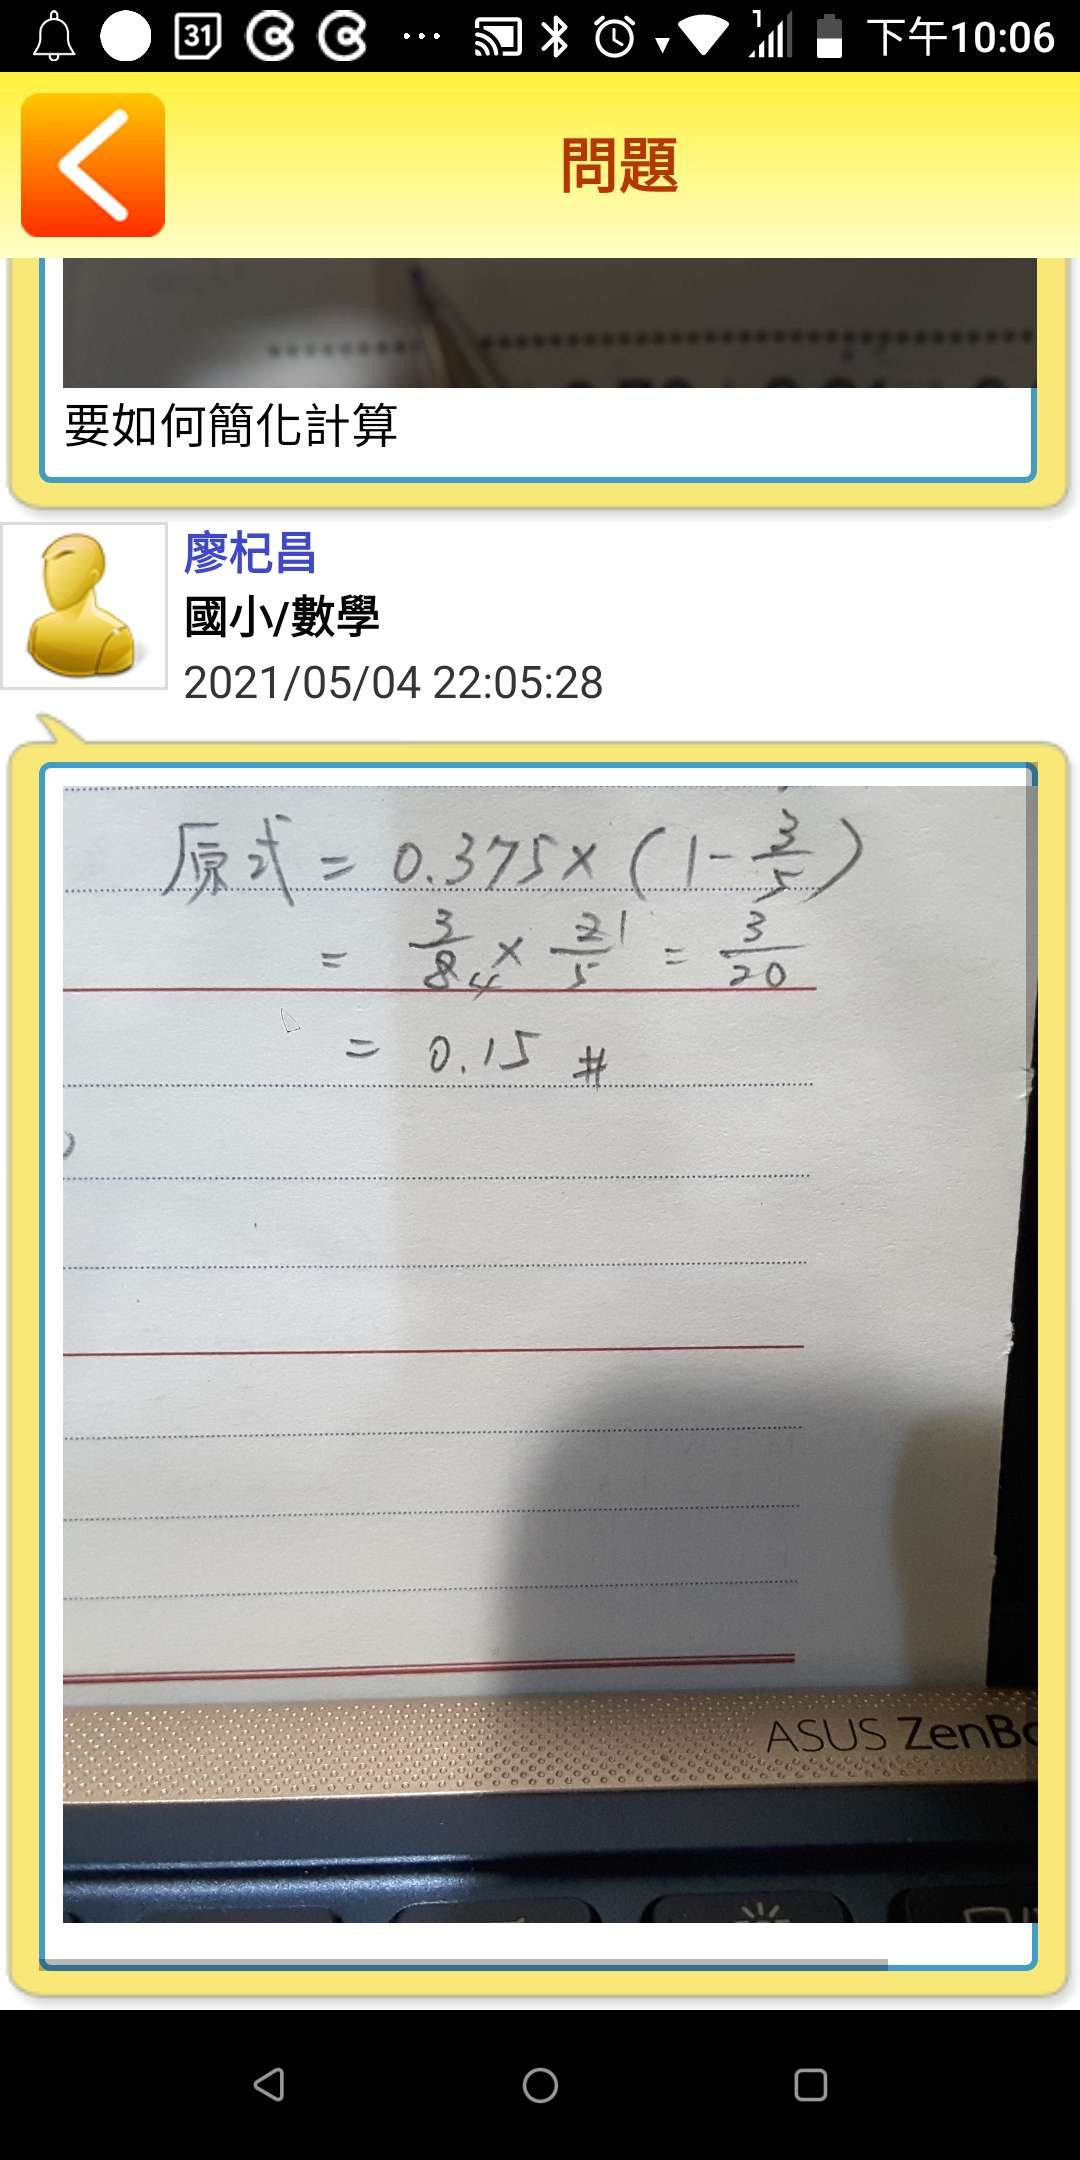 31 1 下午10:06
問題
要如何簡化計算
廖杞昌
國小/數學
2021/05/04 22:05:28
原式 = 0.375×(1-3/5)
= 3/8 4 × 2/5 1 = 3/20
= 0.15 #
ASUS ZenBo